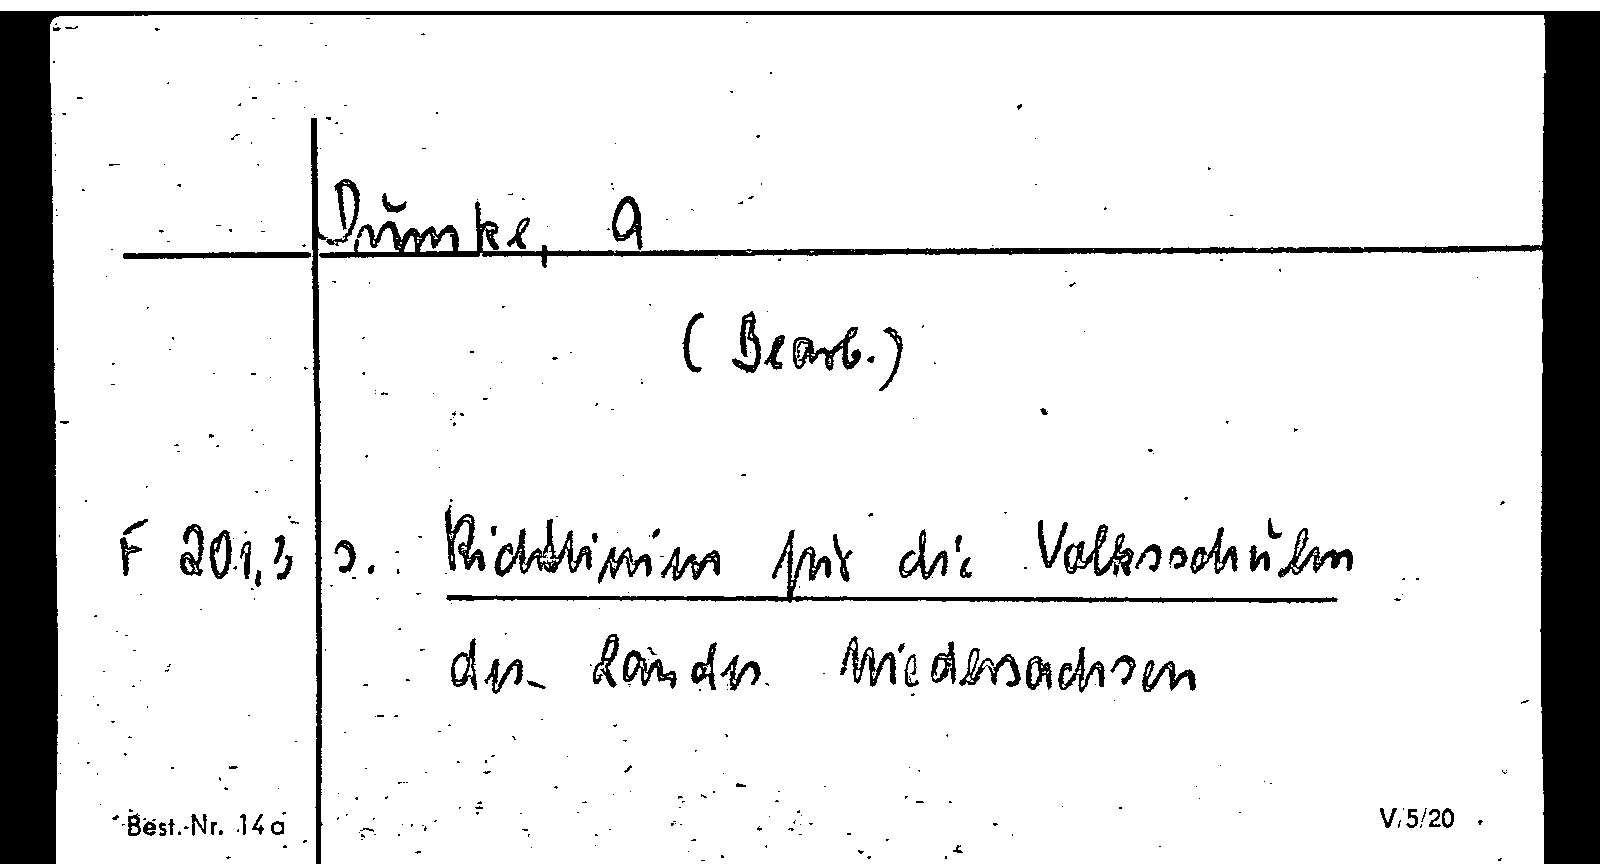 Dumke, A
(Bearb.)
F 201,3 s. Richtlinien für die Volksschulen
des Landes Niedersachsen
Best.-Nr. 14a V/5/20